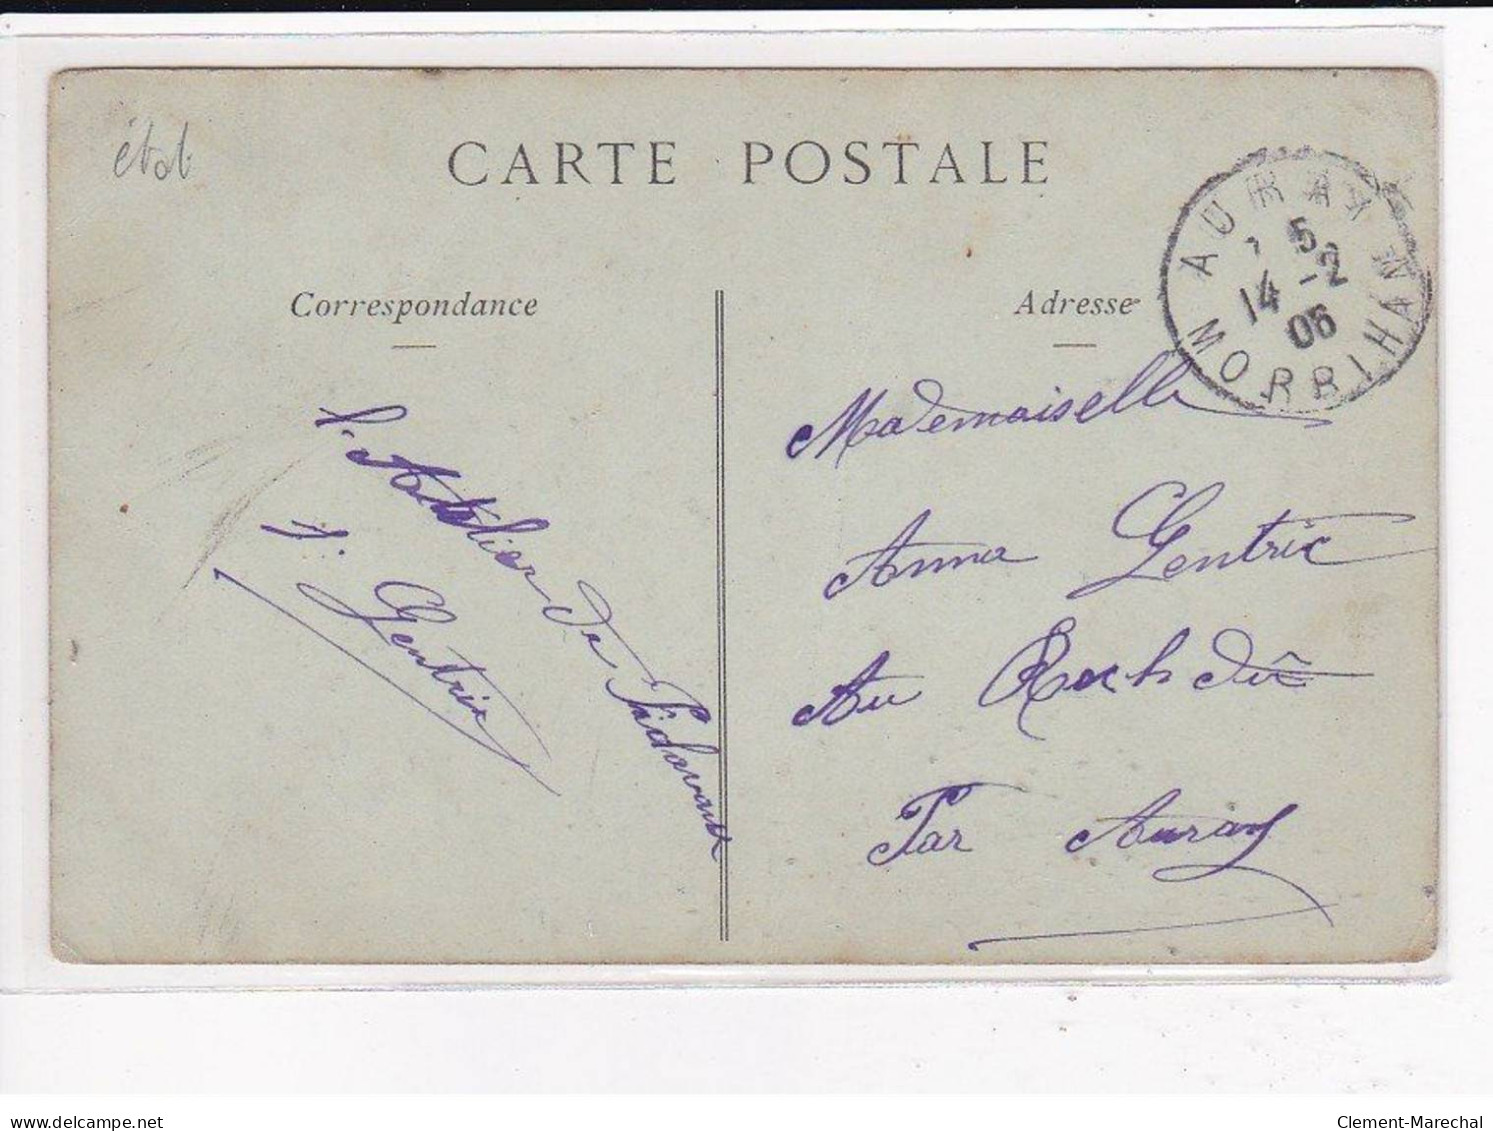 étab
CARTE POSTALE
AURAY
5
14 -2
06
MORBIHAN
Correspondance
Adresse
J. Gentric
Mademoiselle
Anna Gentric
Au Roch du
Par Auray
delcampe.net
Clement-Marechal